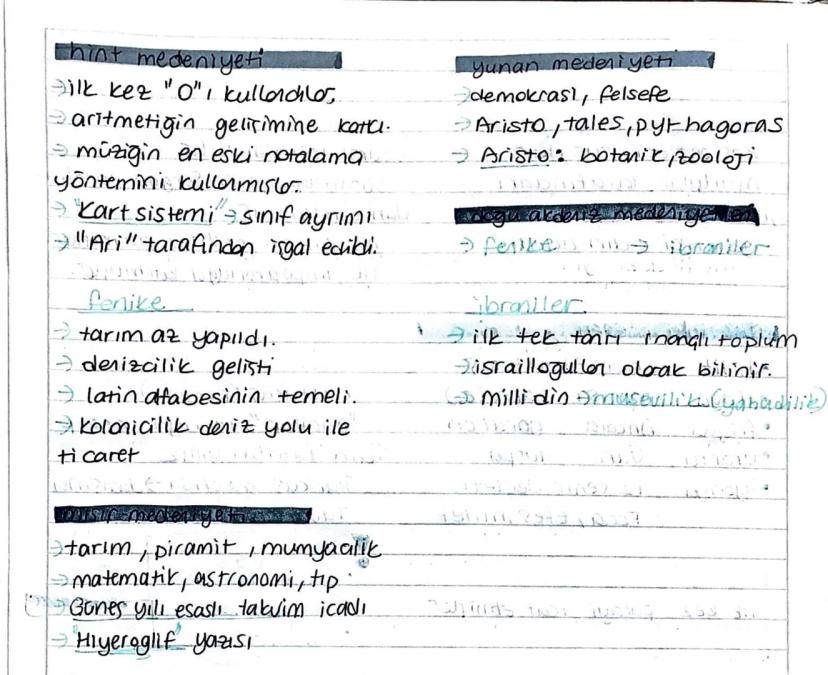 hint medeniyeti
→ilk kez "0"ı kullandılar.
→aritmetiğin gelişimine katkı.
→ müziğin en eski notalama
yöntemini kullanmışlar.
→"Kart sistemi"→ sınıf ayrımı
→"Ari" tarafından işgal edildi.
fenike
→ tarım az yapıldı.
→ denizcilik gelişti
→ latin alfabesinin temeli.
→ kolonicilik deniz yolu ile
ticaret
mısır medeniyeti
→tarım, piramit, mumyacılık
→matematik, astronomi, tıp
→Güneş yılı esaslı takvim icadı
→"Hiyeroglif" yazısı
yunan medeniyeti
→demokrasi, felsefe
→Aristo, tales, pythagoras
→ Aristo: botanik, zooloji
doğu akdeniz medeniyetleri
→ fenike → ibraniler
ibraniler
→ ilk tek tanrı inançlı toplum
→israiloğulları olarak bilinir.
→ milli din →musevilik (yahudilik)